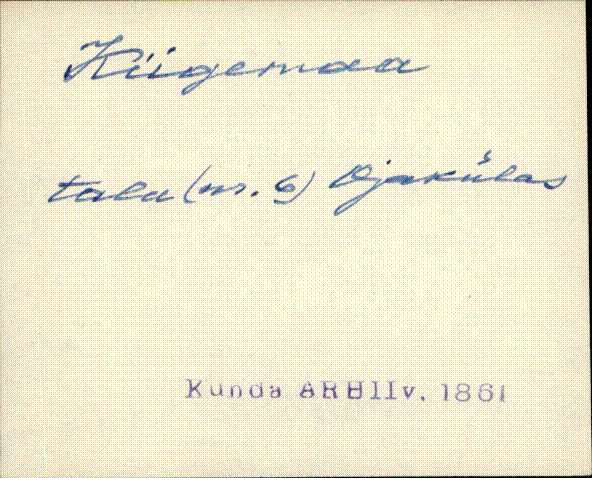 Kiigemaa
talu (nr. 6) Ojakülas
Kunda ARHIIv. 1861